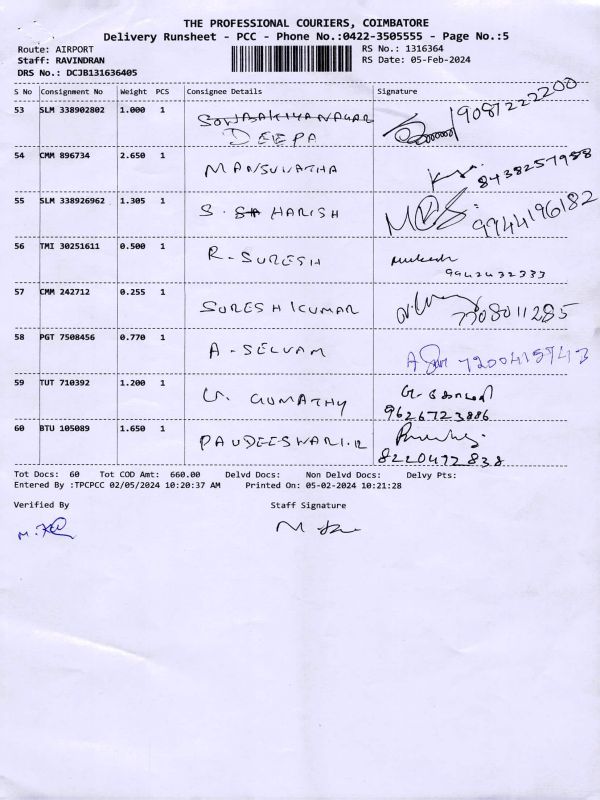 THE PROFESSIONAL COURIERS, COIMBATORE
Delivery Runsheet - PCC - Phone No.:0422-3505555 - Page No.:5
Route: AIRPORT RS No.: 1316364
Staff: RAVINDRAN RS Date: 05-Feb-2024
DRS No.: DCJB131636405
S No Consignment No Weight PCS Consignee Details Signature
53 SLM 338902802 1.000 1 DEEPA 9087222200
54 CMM 896734 2.650 1 MANSUNATHA 8438257958
55 SLM 338926962 1.305 1 S. HARISH 9944196182
56 TMI 30251611 0.500 1 R-SURESH Mukesh
9942432333
57 CMM 242712 0.255 1 SURESHKUMAR 7708011285
58 PGT 7508456 0.770 1 A-SELVAM 7200415743
59 TUT 710392 1.200 1 G. GUMATHY
9626723886
60 BTU 105089 1.650 1 PAUDEESWARI.R
8220472838
Tot Docs: 60 Tot COD Amt: 660.00 Delvd Docs: Non Delvd Docs: Delvy Pts:
Entered By :TPCPCC 02/05/2024 10:20:37 AM Printed On: 05-02-2024 10:21:28
Verified By Staff Signature